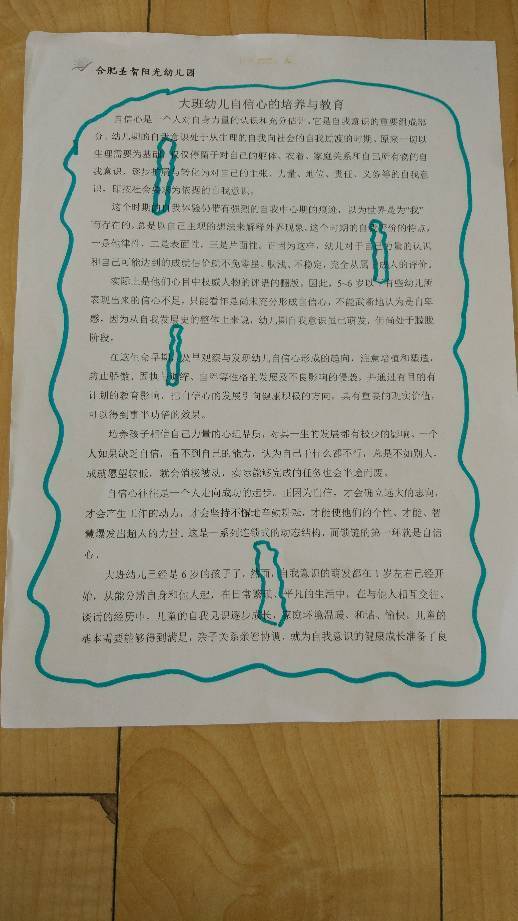 合肥圣智阳光幼儿园
大班幼儿自信心的培养与教育
自信心是一个人对自身力量的认识和充分估计，它是自我意识的重要组成部
分。幼儿期的自我意识处于从生理的自我向社会的自我过渡的时期。原来一切以
生理需要为基础，仅仅停留于对自己的躯体、衣着、家庭关系和自己所有物的自
我意识，逐步扩展与转化为对自己的主张、力量、地位、责任、义务等的自我意
识，即依社会为依据的自我意识。
这个时期的自我体验仍带有强烈的自我中心期的痕迹，以为世界是为“我”
而存在的，总是以自己主观的想法来解释外界现象。这个时期的自我评价的特点，
一是依律性，二是表面性，三是片面性。正因为这样，幼儿对于自己力量的认识
和自己可能达到的成就估价就不免零星、肤浅、不稳定，完全从属于成人的评价。
实际上是他们心目中权威人物的评语的翻版。因此，5-6岁以有些幼儿所
表现出来的信心不足，只能看作是尚未充分形成自信心，不能武断地认为是自卑
感，因为从自我发展史的整体上来说，幼儿期自我意识虽已萌发，但尚处于朦胧
阶段。
在这生命早期，及早观察与发现幼儿自信心形成的趋向，注意培植和塑造，
防止骄傲、固执与退缩、自卑等性格的发展及不良影响的侵袭，并通过有目的有
计划的教育影响，把自信心的发展引向健康积极的方向，具有重要的现实价值，
可以得到事半功倍的效果。
培养孩子相信自己力量的心理品质，对其一生的发展都有极少的影响。一个
人如果缺乏自信，看不到自己的能力，认为自己干什么都不行，总是不如别人，
成就愿望较低，就会消极被动，实际能够完成的任务也会半途而废。
自信心往往是一个人走向成功的起步。正因为自信，才会确立远大的志向，
才会产生工作的动力，才会坚持不懈地辛勤耕耘，才能使他们的个性、才能、智
慧爆发出超人的力量。这是一系列连锁式的动态结构，而锁链的第一环就是自信
心。
大班幼儿已经是6岁的孩子了，然而，自我意识的萌发都在1岁左右已经开
始，从能分清自身和他人起，在日常繁琐、平凡的生活中，在与他人相互交往、
谈话的经历中，儿童的自我见识逐步成长，家庭环境温暖、和谐、愉快，儿童的
基本需要能够得到满足，亲子关系亲密协调，就为自我意识的健康成长准备了良